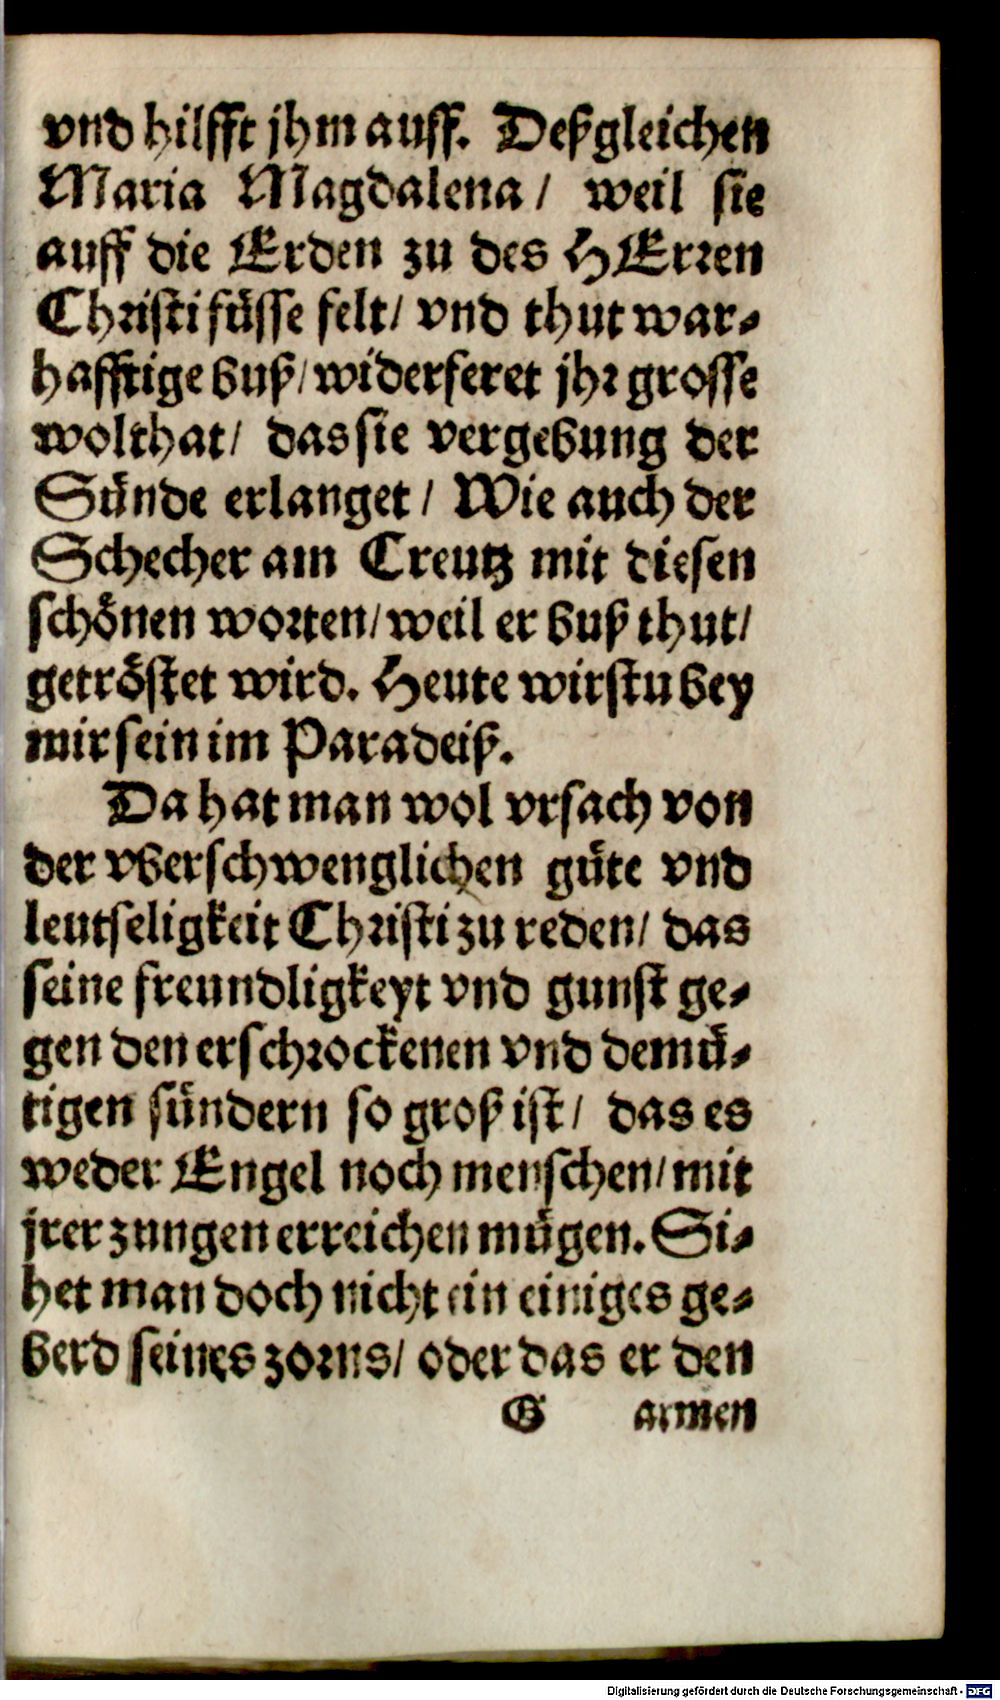 vnd hilfft jhm auff. Deßgleichen
Maria Magdalena/ weil sie
auff die Erden zu des HErren
Christi füsse felt/ vnd thut war-
hafftige buß/ widerferet jhr grosse
wolthat/ das sie vergebung der
Sünde erlanget/ Wie auch der
Schecher am Creutz mit diesen
schönen worten/ weil er buß thut/
getröstet wird. Heute wirstu bey
mir sein im Paradeiß.
Da hat man wol vrsach von
der vberschwenglichen güte vnd
leutseligkeit Christi zu reden/ das
seine freundligkeyt vnd gunst ge-
gen den erschrockenen vnd demü-
tigen sündern so groß ist/ das es
weder Engel noch menschen/ mit
jrer zungen erreichen mügen. Si-
het man doch nicht ein einiges ge-
berd seines zorns/ oder das er den
G armen
Digitalisierung gefördert durch die Deutsche Forschungsgemeinschaft - DFG